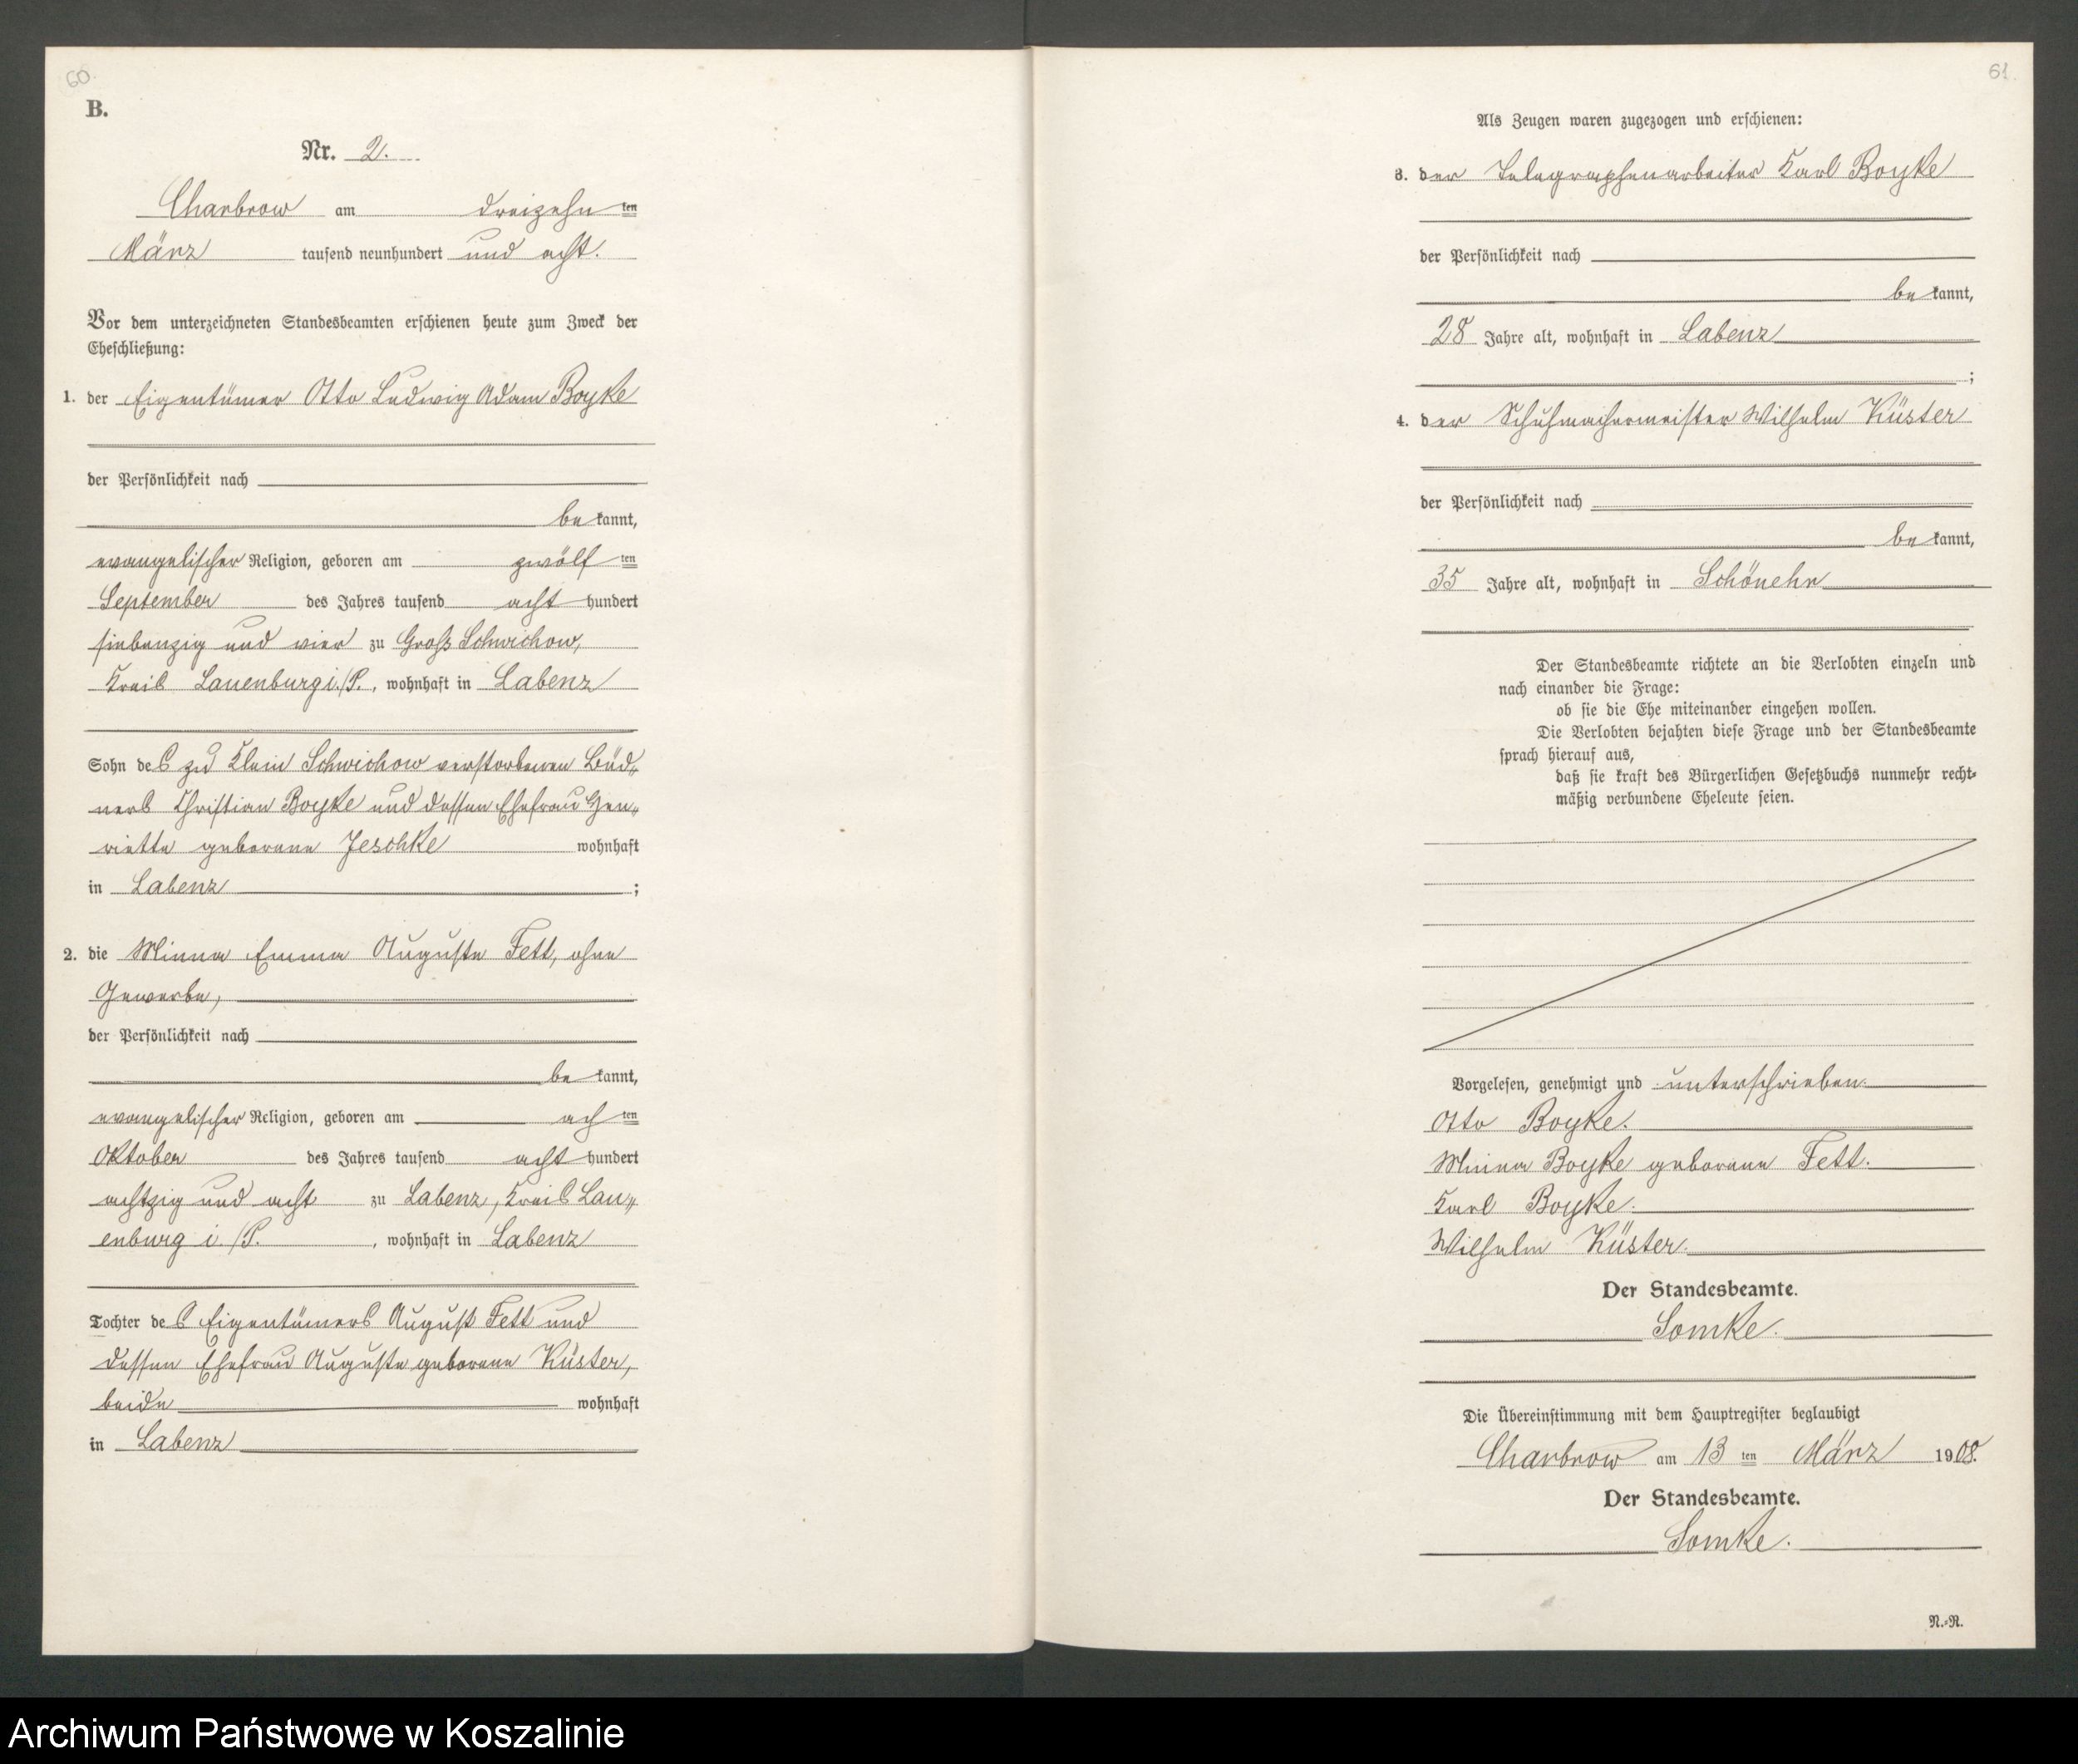 60.
B.
Nr. 2.
Charbrow am dreizehn ten
März tausend neunhundert und acht.
Vor dem unterzeichneten Standesbeamten erschienen heute zum Zweck der
Eheschließung:
1. der Eigentümer Otto Ludwig Adam Boyke
der Persönlichkeit nach
be kannt,
evangelischer Religion, geboren am zwölf ten
September des Jahres tausend acht hundert
siebenzig und vier zu Groß Schwichow,
Kreis Lauenburg i./P., wohnhaft in Labenz
Sohn des zu Klein Schwichow verstorbenen Büd„
ners Christian Boyke und dessen Ehefrau Hen„
riette geborene Jeschke wohnhaft
in Labenz ;
2. die Minna Emma Auguste Fett, ohne
Gewerbe,
der Persönlichkeit nach
be kannt,
evangelischer Religion, geboren am ach ten
Oktober des Jahres tausend acht hundert
achtzig und acht zu Labenz, Kreis Lau„
enburg i./P. , wohnhaft in Labenz
Tochter des Eigentümers August Fett und
dessen Ehefrau Auguste geborene Küster,
beide wohnhaft
in Labenz
61.
Als Zeugen waren zugezogen und erschienen:
3. der Telegraphenarbeiter Karl Boyke
der Persönlichkeit nach
be kannt,
28 Jahre alt, wohnhaft in Labenz
;
4. der Schuhmachermeister Wilhelm Küster
der Persönlichkeit nach
be kannt,
35 Jahre alt, wohnhaft in Schönehr
Der Standesbeamte richtete an die Verlobten einzeln und
nach einander die Frage:
ob sie die Ehe miteinander eingehen wollen.
Die Verlobten bejahten diese Frage und der Standesbeamte
sprach hierauf aus,
daß sie kraft des Bürgerlichen Gesetzbuchs nunmehr recht-
mäßig verbundene Eheleute seien.
Vorgelesen, genehmigt und unterschrieben.
Otto Boyke.
Minna Boyke geborene Fett.
Karl Boyke.
Wilhelm Küster.
Der Standesbeamte.
Somke.
Die Übereinstimmung mit dem Hauptregister beglaubigt
Charbrow am 13 ten März 1908.
Der Standesbeamte.
Somke.
N.-N.
Archiwum Państwowe w Koszalinie